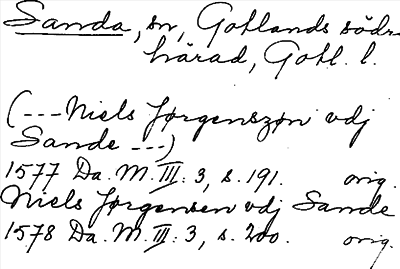 Sanda, sn, Gotlands södr.
härad, Gotl. l.
(---Niels Jørgenszøn vdj
Sande ---)
1577 Da. M. III: 3, s. 191. orig.
Niels Jørgensen vdj Sande
1578 Da. M. III: 3, s. 200. orig.